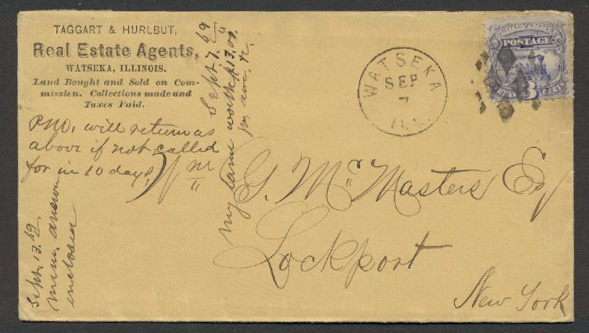 TAGGART & HURLBUT,
Real Estate Agents,
WATSEKA, ILLINOIS.
Land Bought and Sold on Com-
mission. Collections made and
Taxes Paid.
P.M. will return as
above if not called
for in 10 days
WATSEKA
SEP
7
ILL.
POSTAGE
G. McMasters Esq
Lockport
New York
Sept. 7. 69
my land worth
per acre
Sept. 13. 69
answer
enclosed